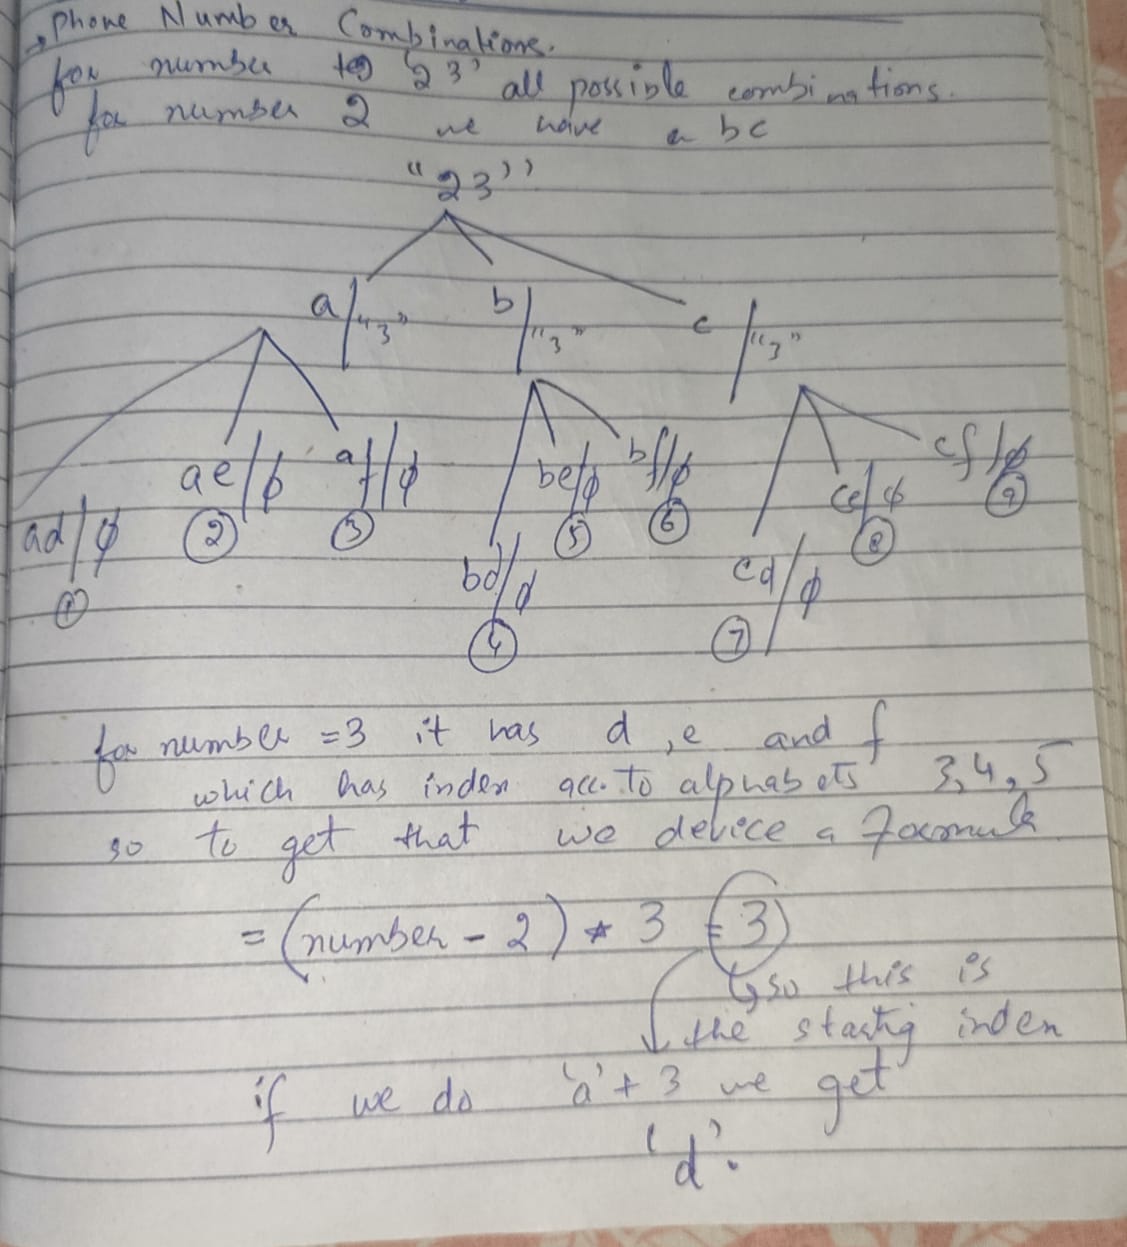 → Phone Number Combinations.
for number to '23' all possible combinations.
for number 2 we have a bc
"23"
a/"3" b/"3" c/"3"
ad/ϕ ae/ϕ af/ϕ be/ϕ bf/ϕ ce/ϕ cf/ϕ
① ② ③ ⑤ ⑥ ⑧ ⑨
bd/ϕ cd/ϕ
④ ⑦
for number =3 it has d, e and f
which has index acc. to alphabets 3,4,5
so to get that we device a formula
= (number - 2) * 3 = 3
↳ so this is
the startig index
if we do 'a' + 3 we get
'd'.